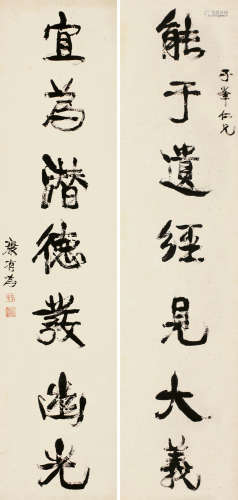 子峯仁兄
能于遺經見大義
宜為潛德發幽光
康有為